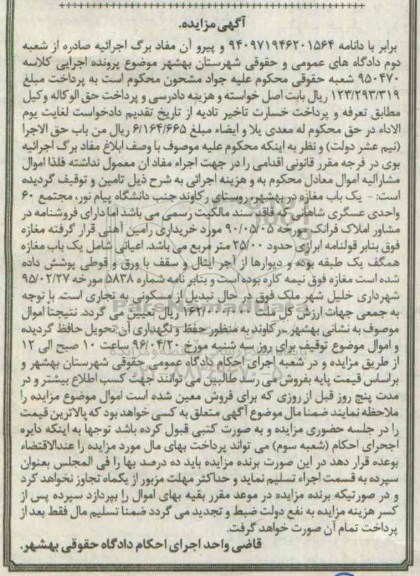 آگهی مزایده.
برابر با دادنامه ۹۴۰۹۷۱۹۴۶۲۰۱۵۶۴ و پیرو آن مفاد برگ اجرائیه صادره از شعبه
دوم دادگاه های عمومی و حقوقی شهرستان بهشهر موضوع پرونده اجرایی کلاسه
۹۵۰۴۷۰ شعبه حقوقی محکوم علیه جواد مشحون محکوم است به پرداخت مبلغ
۱۲۳/۲۹۳/۳۱۹ ریال بابت اصل خواسته و هزینه دادرسی و پرداخت حق الوکاله وکیل
مطابق تعرفه و پرداخت خسارت تاخیر تادیه از تاریخ تقدیم دادخواست لغایت یوم
الاداء در حق محکوم له معدی یلا و ایضاء مبلغ ۶/۱۶۴/۶۶۵ ریال من باب حق الاجرا
(نیم عشر دولت) و نظر به اینکه محکوم علیه موصوف با وصف ابلاغ مفاد برگ اجرائیه
بوی در فرجه مقرر قانونی اقدامی را در جهت اجراء مفاد آن معمول نداشته فلذا اموال
مشارالیه اموال معادل محکوم به و هزینه اجرائی به شرح ذیل تامین و توقیف گردیده
است: - یک باب مغازه در بهشهر، روستای رکاوند جنب دانشگاه پیام نور، مجتمع ۶۰
واحدی عسگری شاهانی که فاقد سند مالکیت رسمی می باشد اما دارای فروشنامه در
مشاور املاک فرانک مورخه ۹۰/۰۵/۰۵ مورد خریداری رامین آهنی قرار گرفته مغازه
فوق بنابر قولنامه ابرازی حدود ۲۵/۰۰ متر مربع می باشد. اعیانی شامل یک باب مغازه
همگف یک طبقه بوده و دیوارها از آجر ایتال و سقف با ورق و قوطی پوشش داده
شده است مغازه فوق نیمه کاره بوده است و بنابر نامه شماره ۵۸۳۸ مورخه ۹۵/۰۲/۲۷
شهرداری خلیل شهر ملک فوق در حال تبدیل از مسکونی به تجاری است. با توجه
به جمعی جهات ارزش کل ریال تعیین می گردد. نتیجتا اموال
موصوف به نشانی بهشهر - رکاوند به منظور حفظ و نگهداری آن تحویل حافظ گردیده
و اموال موضوع توقیف برای روز سه شنبه مورخ ۹۶/۰۴/۲۰ ساعت ۱۰ صبح الی ۱۲
از طریق مزایده و در شعبه اجرای احکام دادگاه عمومی حقوقی شهرستان بهشهر و
براساس قیمت پایه بفروش می رسد طالبین می توانند جهت کسب اطلاع بیشتر و در
مدت پنج روز قبل از روزی که برای فروش معین شده است اموال موضوع مزایده را
ملاحظه نمایند ضمنا مال موضوع آگهی متعلق به کسی خواهد بود که بالاترین قیمت
را در جلسه حضوری مزایده و به صورت کتبی قبول کرده باشد توجها به اینکه دایره
اجحرای احکام (شعبه سوم) می تواند پرداخت بهای مال مورد مزایده را عندالاقتضاء
بوعده قرار دهد در این صورت برنده مزایده باید ده درصد بها را فی المجلس بعنوان
سپرده به قسمت اجراء تسلیم نماید و حداکثر مهلت مزبور از یکماه تجاوز نخواهد کرد
و در صورتیکه برنده مزایده در موعد مقرر بقیه بهای اموال را نپردازد سپرده پس از
کسر هزینه مزایده به نفع دولت ضبط و تجدید می گردد ضمنا تسلیم مال فقط بعد از
پرداخت تمام آن صورت خواهد گرفت.
قاضی واحد اجرای احکام دادگاه حقوقی بهشهر.